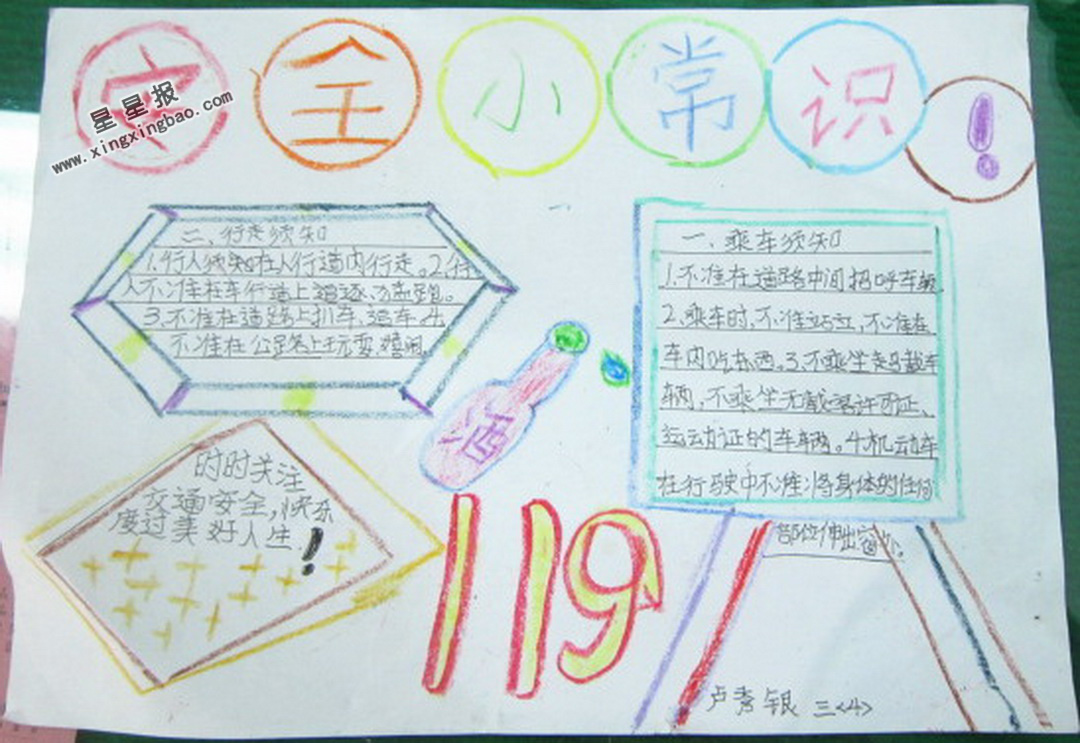 安全小常识!
星星报
www.xingxingbao.com
二、行走须知
1.行人须知在人行道内行走。2.行
人不准在车行道上追逐、猛跑。
3.不准在道路上扒车、追车。4.
不准在公路上玩耍、嬉闹
一、乘车须知
1.不准在道路中间招呼车辆.
2.乘车时,不准站立,不准在
车内吃东西。3.不乘坐超载车
辆,不乘坐无载客许可证、
运动证的车辆。4.机动车
在行驶中不准将身体的任何
部位伸出窗外。
酒
时时关注
交通安全,快乐
度过美好人生!
119
卢秀银 三<4>